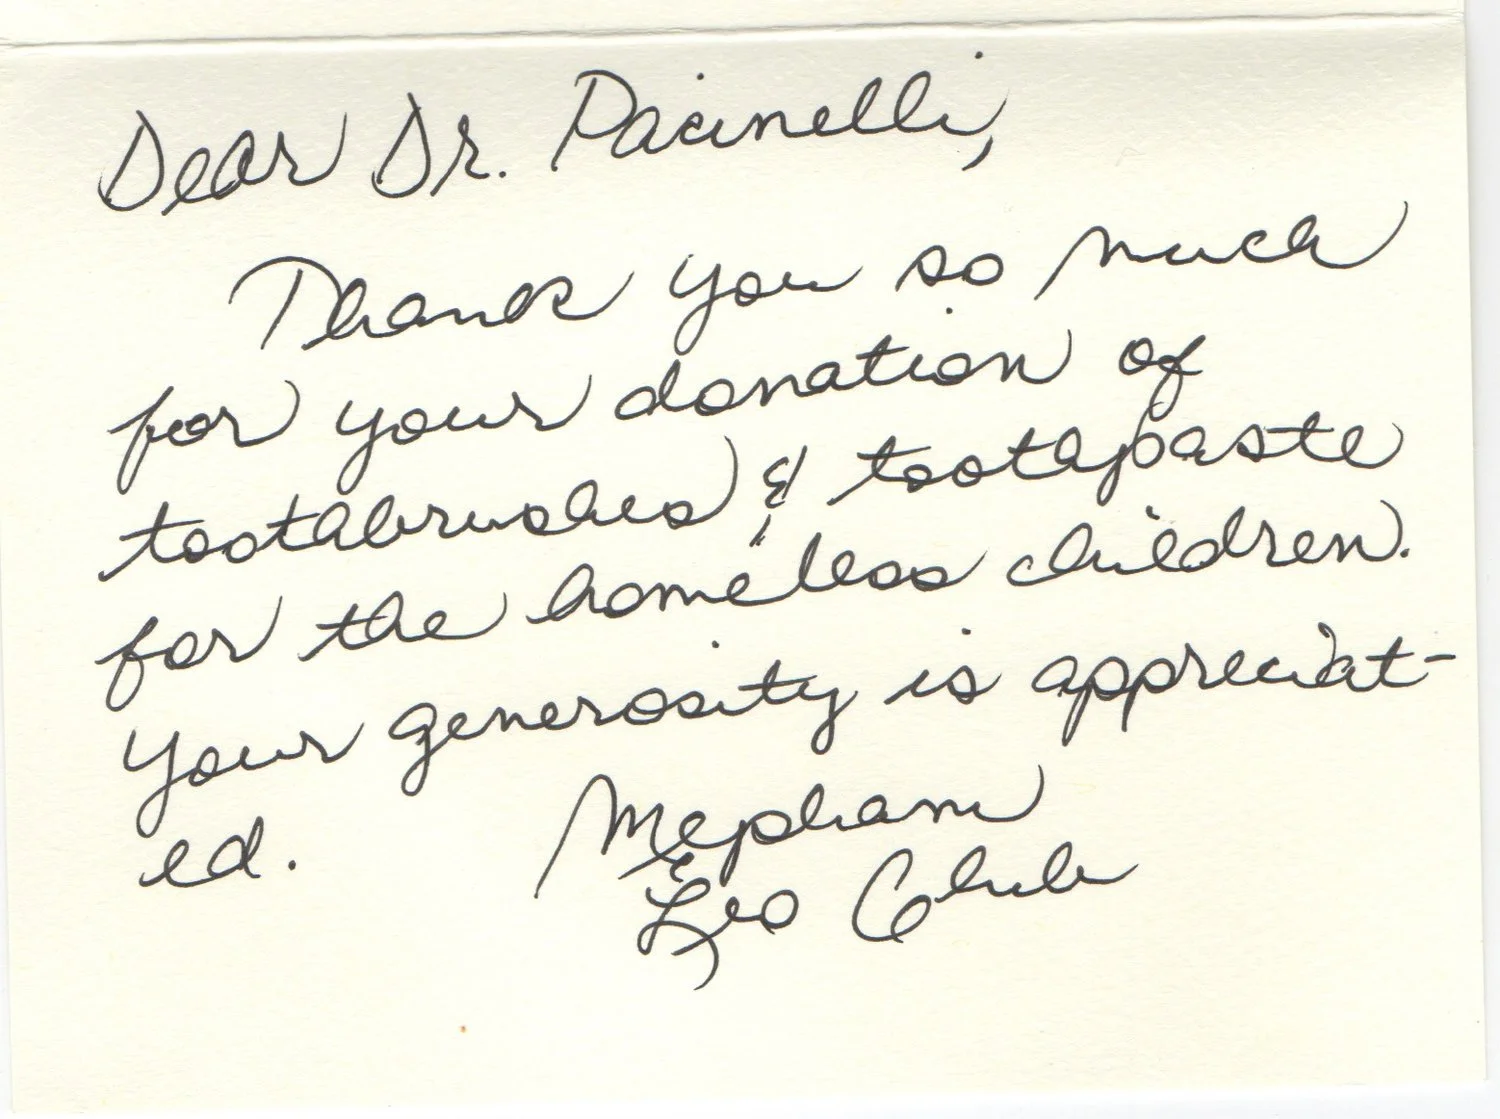 Dear Dr. Pacinelli,
Thank you so much
for your donation of
toothbrushes & toothpaste
for the homeless children.
Your generosity is appreciat-
ed.
Mepham
Leo Club